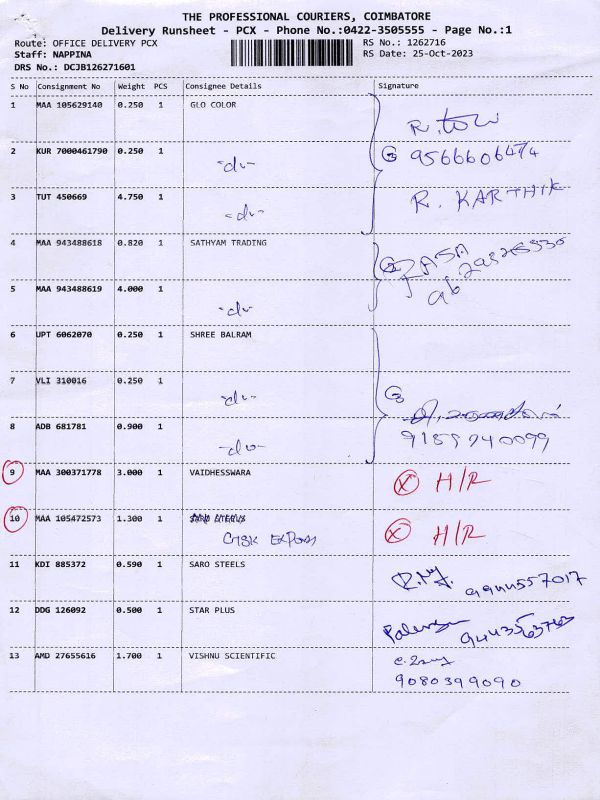 THE PROFESSIONAL COURIERS, COIMBATORE
Delivery Runsheet - PCX - Phone No.:0422-3505555 - Page No.:1
Route: OFFICE DELIVERY PCX RS No.: 1262716
Staff: NAPPINA RS Date: 25-Oct-2023
DRS No.: DCJB126271601
S No Consignment No Weight PCS Consignee Details Signature
1 MAA 105629140 0.250 1 GLO COLOR
2 KUR 7000461790 0.250 1 -do- 3 9566606474
3 TUT 450669 4.750 1 -do- R. KARTHIK
4 MAA 943488618 0.820 1 SATHYAM TRADING
5 MAA 943488619 4.000 1 -do-
6 UPT 6062070 0.250 1 SHREE BALRAM
7 VLI 310016 0.250 1 -do- 3
8 ADB 681781 0.900 1 -do-
9 MAA 300371778 3.000 1 VAIDHESSWARA X H/R
10 MAA 105472573 1.300 1 SARO STEELS X H/R
11 KDI 885372 0.590 1 SARO STEELS 9944557017
12 DDG 126092 0.500 1 STAR PLUS
13 AMD 27655616 1.700 1 VISHNU SCIENTIFIC
9080399090